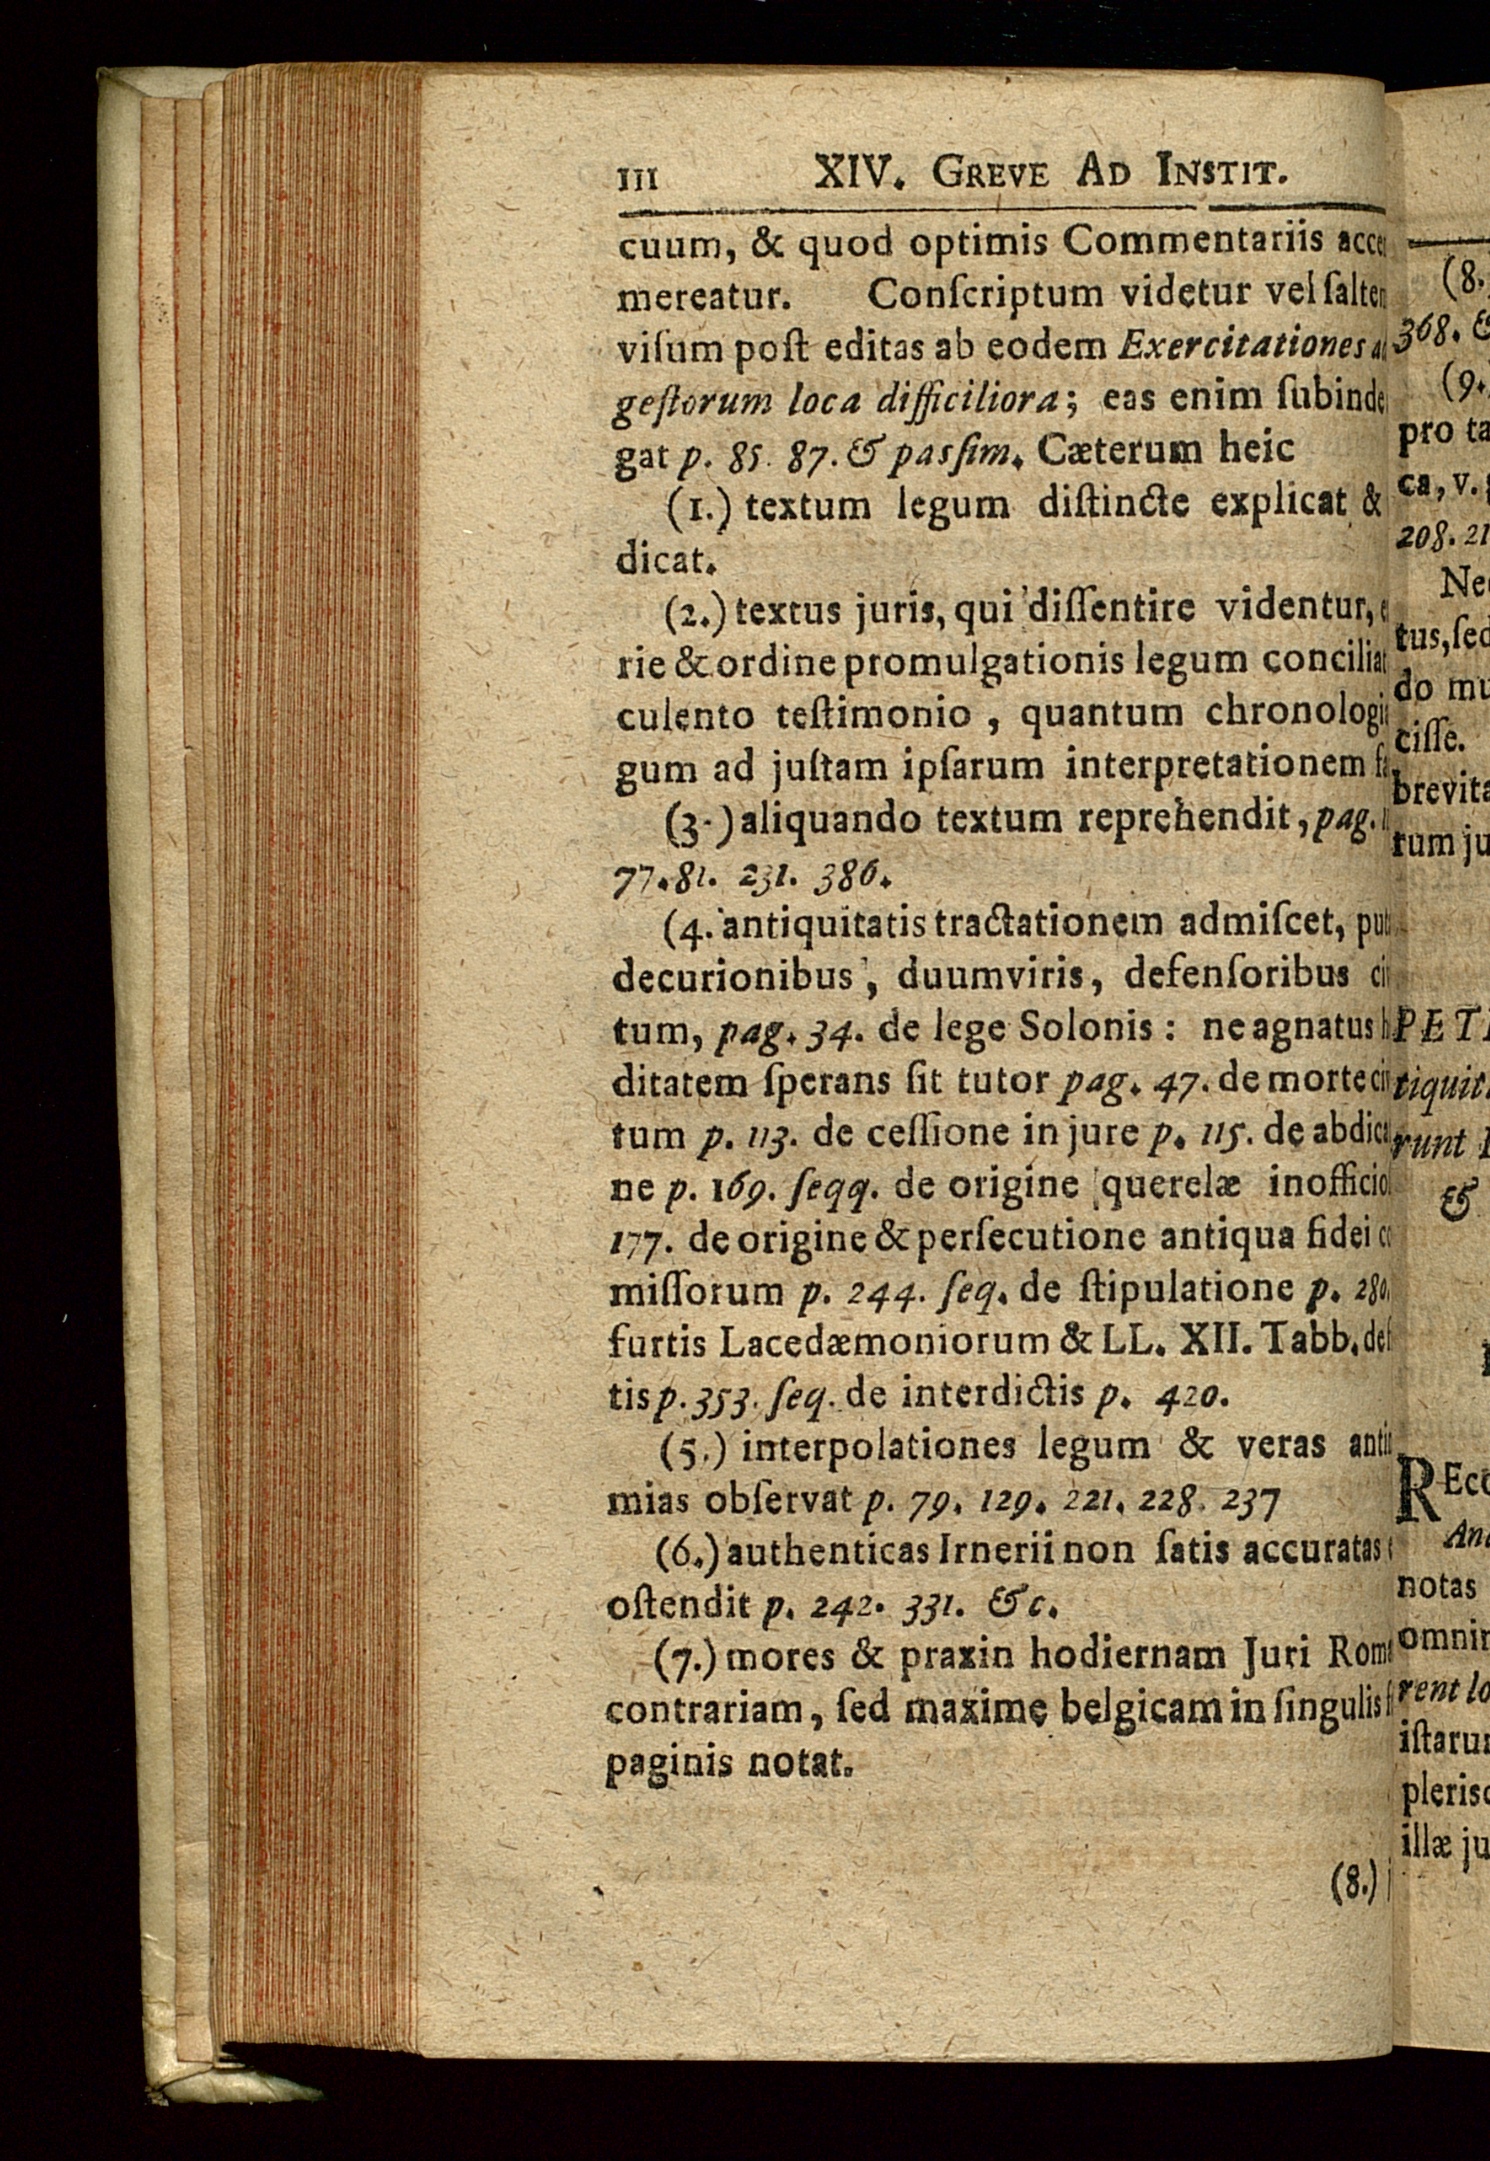 III XIV. GREVE AD INSTIT.
cuum, & quod optimis Commentariis
mereatur. Conſcriptum videtur vel
viſum poſt editas ab eodem Exercitationes
geſtorum loca difficiliora; eas enim ſubinde
gat p. 85. 87. & pasſim. Cæterum heic
(1.) textum legum diſtincte explicat &
dicat.
(2.) textus juris, qui diſſentire videntur,
rie & ordine promulgationis legum
culento teſtimonio, quantum
gum ad juſtam ipſarum interpretationem
(3.) aliquando textum reprehendit, pag.
77. 81. 231. 386.
(4. antiquitatis tractationem admiſcet,
decurionibus, duumviris, defenſoribus
tum, pag. 34. de lege Solonis: ne agnatus
ditatem ſperans ſit tutor pag. 47. de morte
tum p. 113. de ceſſione in jure p. 115. de
ne p. 169. ſeqq. de origine querelæ
177. de origine & perſecutione antiqua fidei
miſſorum p. 244. ſeq. de ſtipulatione p. 280.
furtis Lacedæmoniorum & LL. XII. Tabb.
tis p. 353. ſeq. de interdictis p. 420.
(5.) interpolationes legum & veras
mias obſervat p. 79. 129. 221. 228. 237
(6.) authenticas Irnerii non ſatis accuratas
oſtendit p. 242. 331. &c.
(7.) mores & praxin hodiernam Juri
contrariam, ſed maxime belgicam in ſingulis
paginis notat.
(8.)
(8.
368. &
(9.
pro
ca, v.
208.
tus, ſed
do
ciſſe.
rum
runt
&
notas
rent
illæ